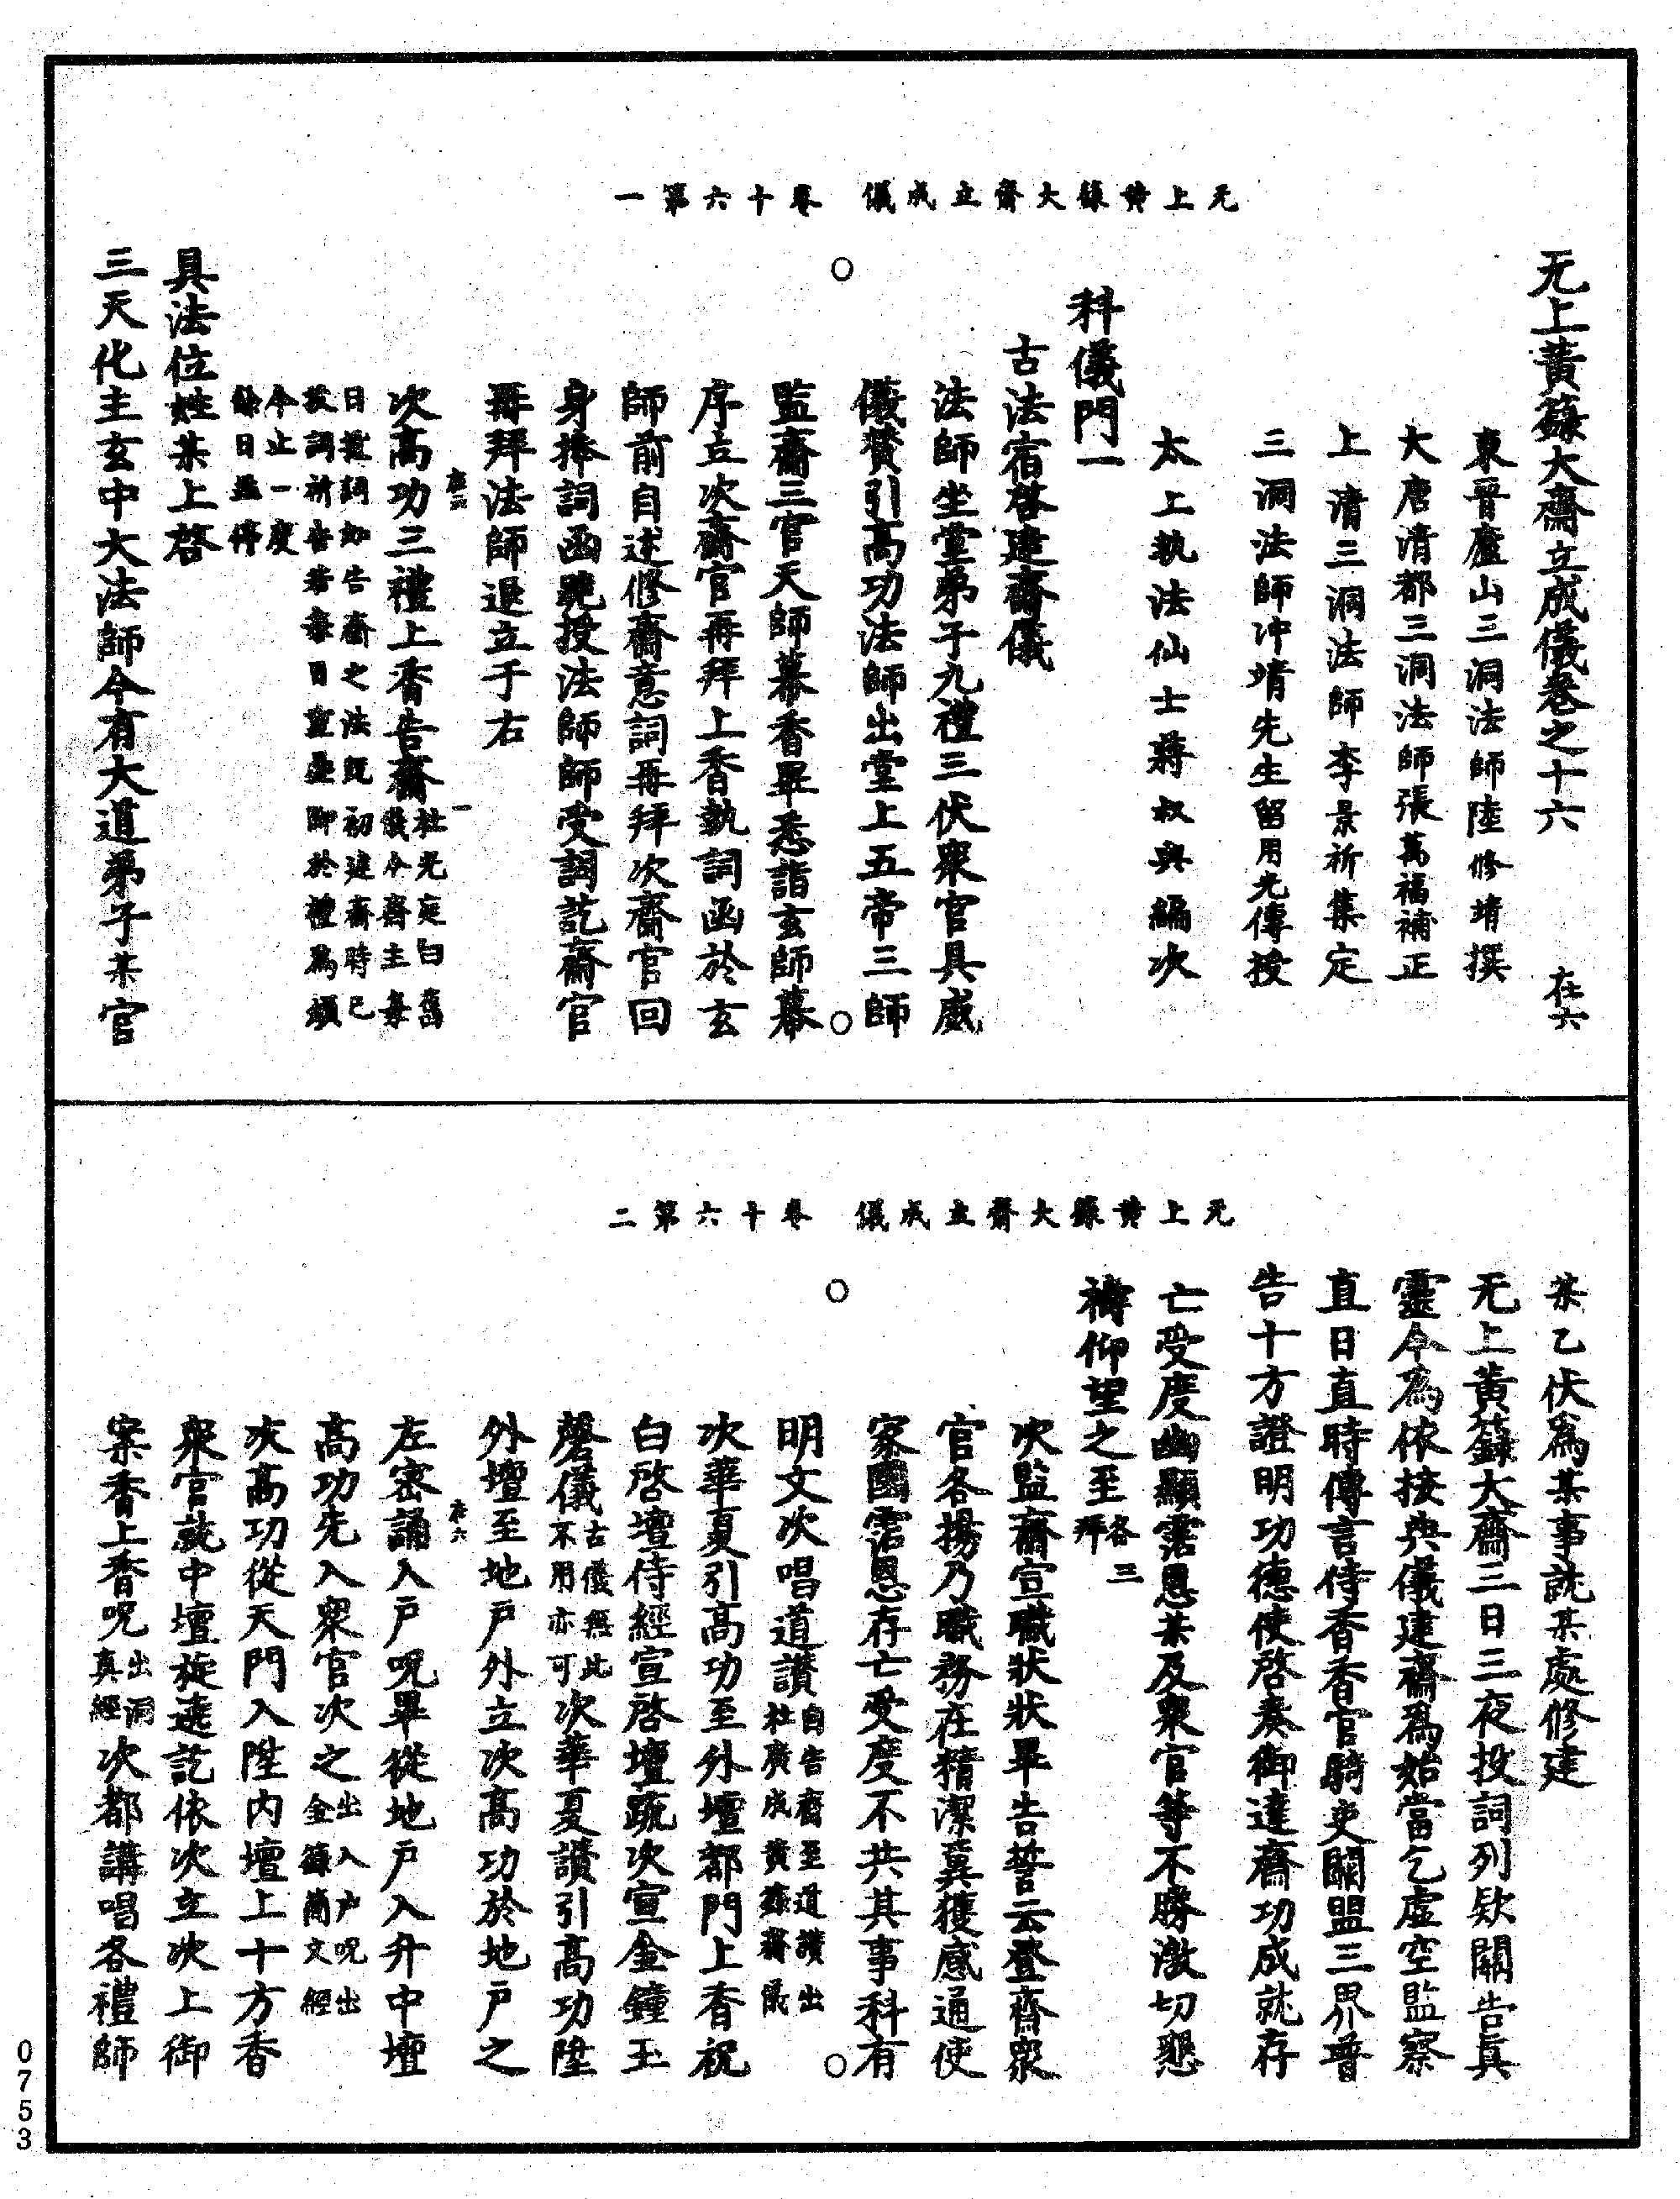 无上黃籙大齋立成儀 卷十六第一
无上黃籙大齋立成儀卷之十六 在六
東晉廬山三洞法師陸修靖撰
大唐清都三洞法師張萬福補正
上清三洞法師李景祈集定
三洞法師冲靖先生留用光傳授
太上執法仙士蔣叔輿編次
科儀門一
古法宿啓建齋儀
法師坐堂弟子九禮三伏衆官具威
儀贊引高功法師出堂上五帝三師
監齋三官天師幕香畢悉詣玄師幕
序立次齋官再拜上香執詞函於玄
師前自述修齋意詞再拜次齋官回
身捧詞函跪授法師師受詞訖齋官
再拜法師退立于右
次高功三禮上香告齋杜光庭曰舊儀今齋主每
日投詞即告齋之法旣初建齋時已
投詞祈告若每日宣疊即於禮爲煩
今止一度
餘日並停
具法位姓某上啓
三天化主玄中大法師今有大道弟子某官
无上黃籙大齋立成儀 卷十六第二
某乙伏爲某事詣某處修建
无上黃籙大齋三日三夜投詞列欵關告眞
靈今為依按典儀建齋爲始當乞虛空監察
直日直時傳言侍香香官騎吏關盟三界普
告十方證明功德使啓奏御達齋功成就存
亡受度幽顯霑恩某及衆官等不勝激切懇
禱仰望之至各三拜
次監齋宣職狀狀畢告誓云登齋衆
官各揚乃職務在精潔冀獲感通使
家國霑恩存亡受度不共其事科有
明文次唱道讚自告齋至道讚出杜廣成黃籙齋儀
次華夏引高功至外壇都門上香祝
白啓壇侍經宣啓壇䟽次宣金鐘玉
磬儀古儀無此不用亦可次華夏讚引高功陞
外壇至地戶外立次高功於地戶之
左密誦入戶呪畢從地戶入升中壇
高功先入衆官次之出入戶呪出金籙簡文經
次高功從天門入陞內壇上十方香
衆官就中壇旋遶訖依次立次上御
案香上香呪出洞真經次都講唱各禮師
0753